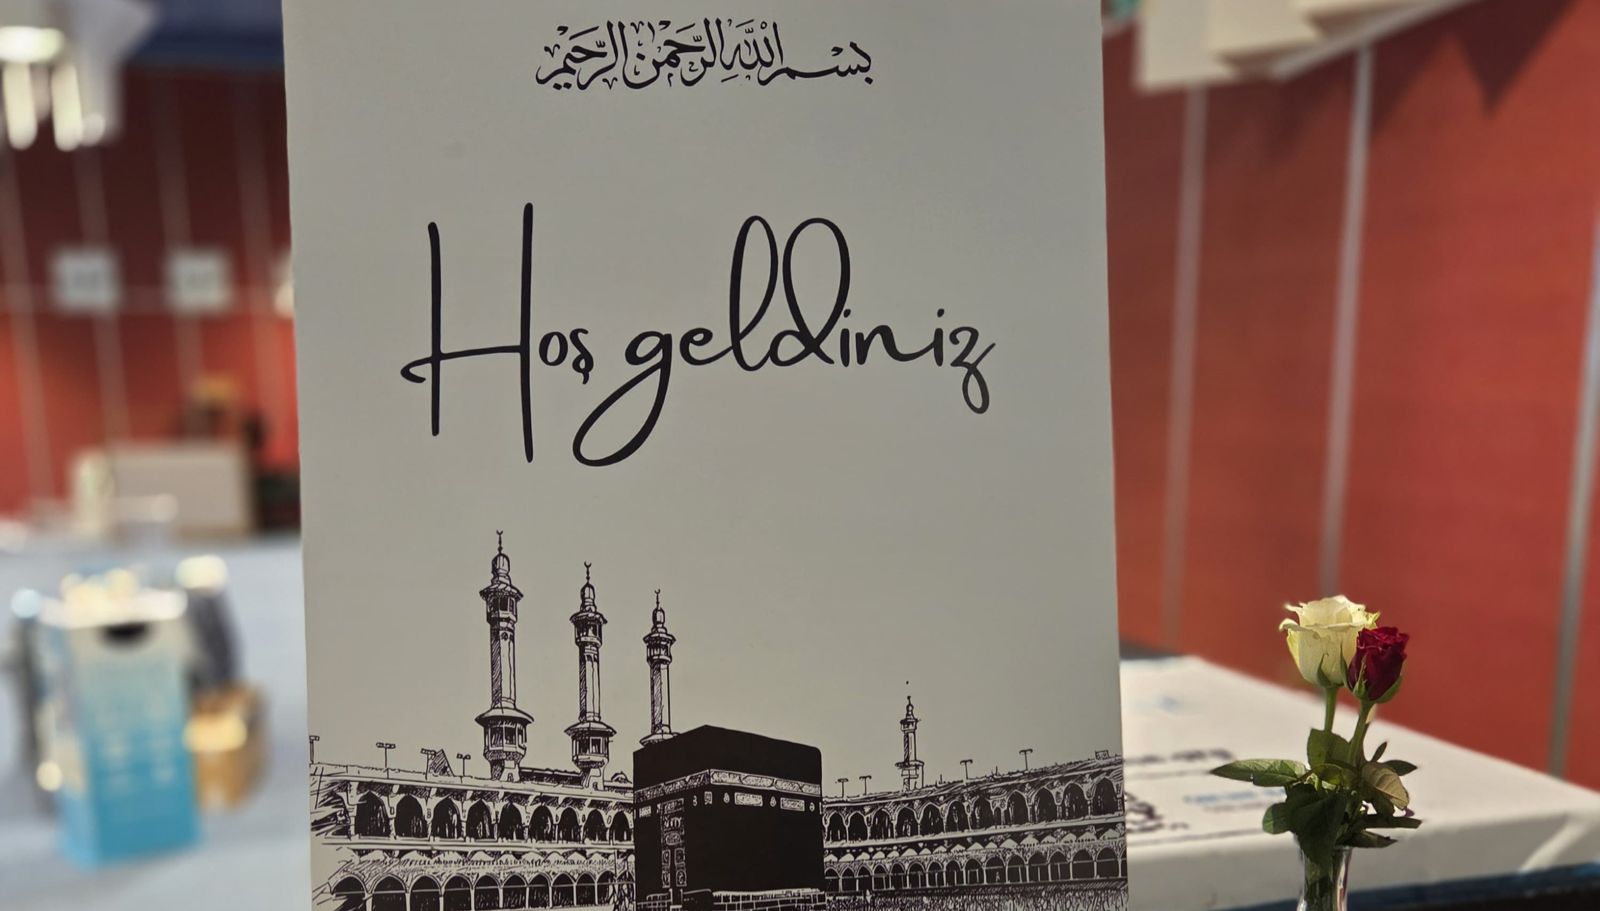 بسم الله الرحمن الرحيم
Hoş geldiniz